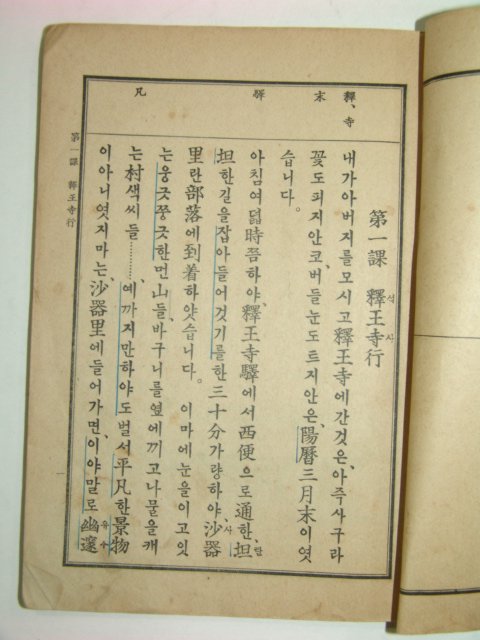 釋、寺
末
驛
凡
第一課 釋王寺行
석 사
내가아버지를모시고釋王寺에간것은、아즉사구라
꽃도피지안코、버들눈도트지안은、陽曆三月末이엿
습니다。
아침여덟時쯤하야釋王寺驛에서西便으로通한、坦
탄
坦한길을잡아들어것기를한三十分가량하야、沙器
사
里란部落에到着하얏습니다。이마에눈을이고잇
는웅긋쭝긋한먼山들、바구니를옆에끼고나물을캐
는村색씨들………、예까지만하야도벌서平凡한景物
이아니엿지마는、沙器里에들어가면、이야말로幽邃
유수
第一課 釋王寺行
一